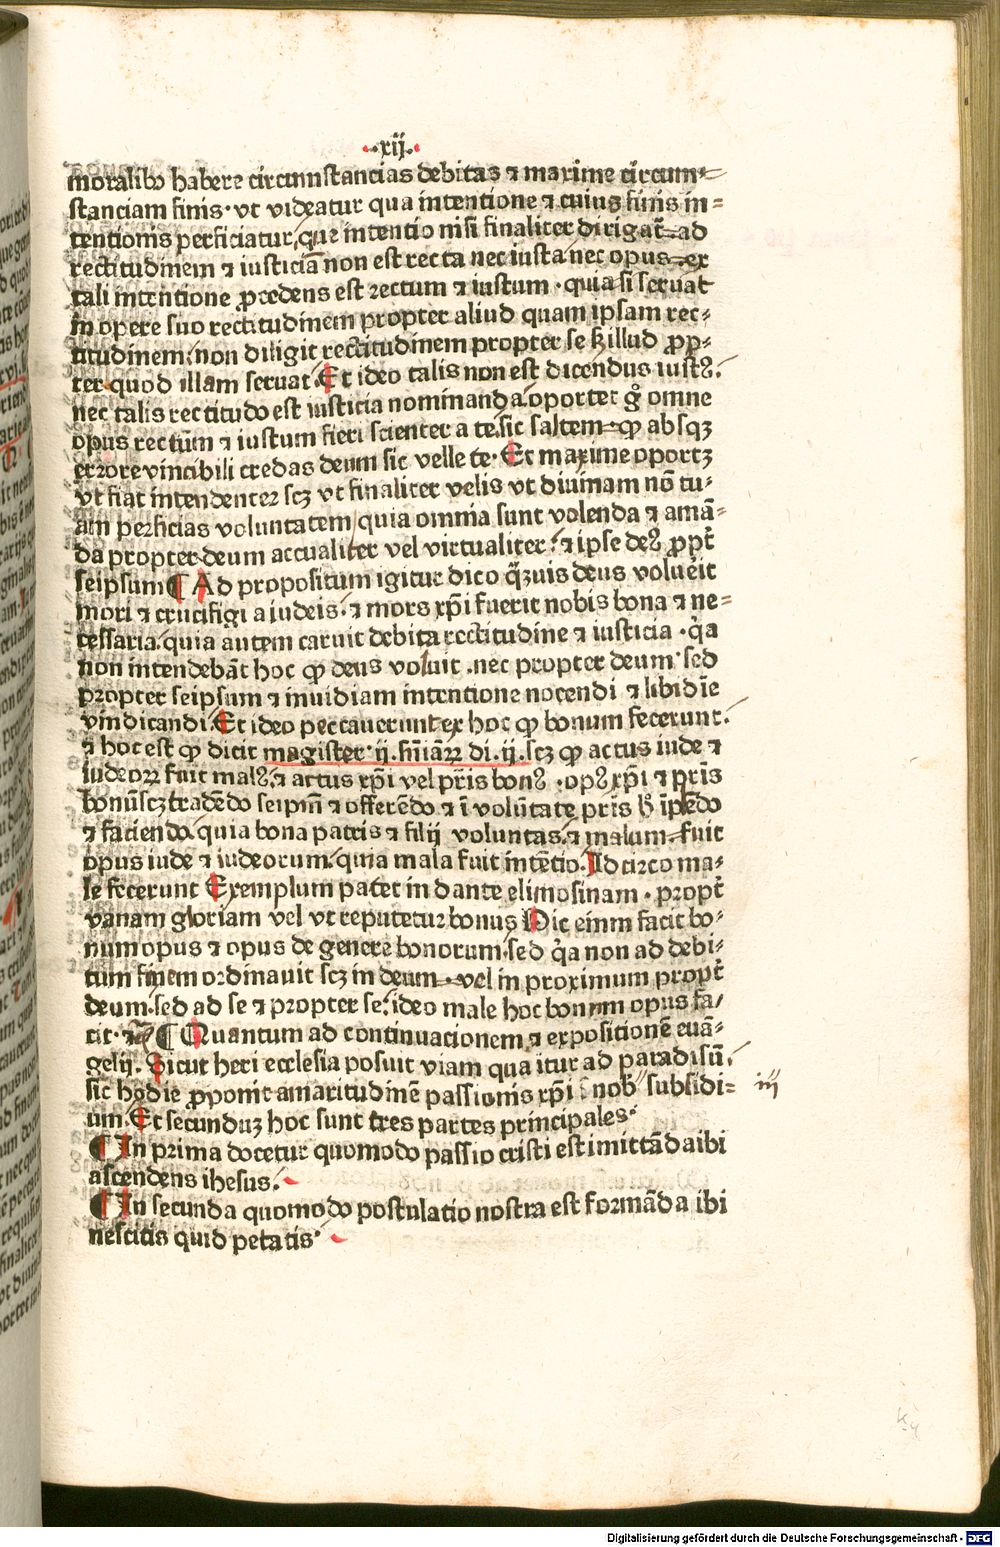 ·xij·
moralibꝰ habere circumstancias debitas ⁊ maxime circum⸗
stanciam finis· vt videatur qua intentione ⁊ cuius finis in⸗
tentionis perficiatur, que intentio nisi finaliter dirigat̄ ad
rectitudinem ⁊ iusticiā non est recta nec iusta nec opus ex
tali intentione ꝓcedens est rectum ⁊ iustum · quia si seruat
in opere suo rectitudinem propter aliud quam ipsam rec⸗
titudinem. non diligit rectitudinem propter se sꝫ illud ꝓp⸗
ter quod illam seruat. Et ideo talis non est dicendus iustꝰ.
nec talis rectitudo est iusticia nominanda oportet gͦ omne
opus rectum ⁊ iustum fieri scienter a te. sic saltem ꝙ absqꝫ
errore vincibili credas deum sic velle te· Et maxime oportꝫ
vt fiat intendenter scꝫ vt finaliter velis vt diuinam nō tu⸗
am perficias voluntatem quia omnia sunt volenda ⁊ amā⸗
da propter deum actualiter vel virtualiter. ⁊ ipse deꝰ ꝓpt̄
seipsum ¶ Ad propositum igitur dico qͣꝫuis deus voluerit
mori ⁊ crucifigi a iudeis. ⁊ mors xp̄i fuerit nobis bona ⁊ ne⸗
cessaria. quia autem caruit debita rectitudine ⁊ iusticia · qͥa
non intendebāt hoc ꝙ deus voluit . nec propter deum· sed
propter seipsum ⁊ inuidiam intentione nocendi ⁊ libidīe
vindicandi. Et ideo peccauerunt ex hoc ꝙ bonum fecerunt.
⁊ hoc est ꝙ dicit magister· ij. sn̄iaꝝ di. ij. scꝫ ꝙ actus iude ⁊
iudeoꝝ fuit malꝰ. ⁊ actus xp̄i vel pr̄is bonꝰ · opꝰ xp̄i ⁊ pr̄is
bonū scꝫ tradēdo seipm̄ ⁊ offerēdo ⁊ ī volūtate pr̄is
⁊ faciendo. quia bona patris ⁊ filij voluntas. ⁊ malum fuit
opus iude ⁊ iudeorum. quia mala fuit intētio. Idcirco ma⸗
le fecerunt Exemplum patet in dante elimosinam · propt̄
vanam gloriam vel vt reputetur bonus Hic einm facit bo⸗
num opus ⁊ opus de genere bonorum. sed qͥa non ad debi⸗
tum finem ordinauit scꝫ in deum · vel in proximum propt̄
deum. sed ad se ⁊ propter se. ideo male hoc bonum opus fa⸗
cit· ⁊c̄ ¶ Quantum ad continuacionem ⁊ expositionē euā⸗
gelij. Sicut heri ecclesia posuit viam qua itur ad paradisū.
sic hodie ꝓponit amaritudinē passionis xp̄i nob subsidi⸗ iij
um. Et secunduꝫ hoc sunt tres partes principales·
¶ In prima docetur quomodo passio cristi est imittāda ibi
ascendens ihesus.
¶ In secunda quomodo postulatio nostra est formāda ibi
nescitis quid petatis·
Digitalisierung gefördert durch die Deutsche Forschungsgemeinschaft - DFG